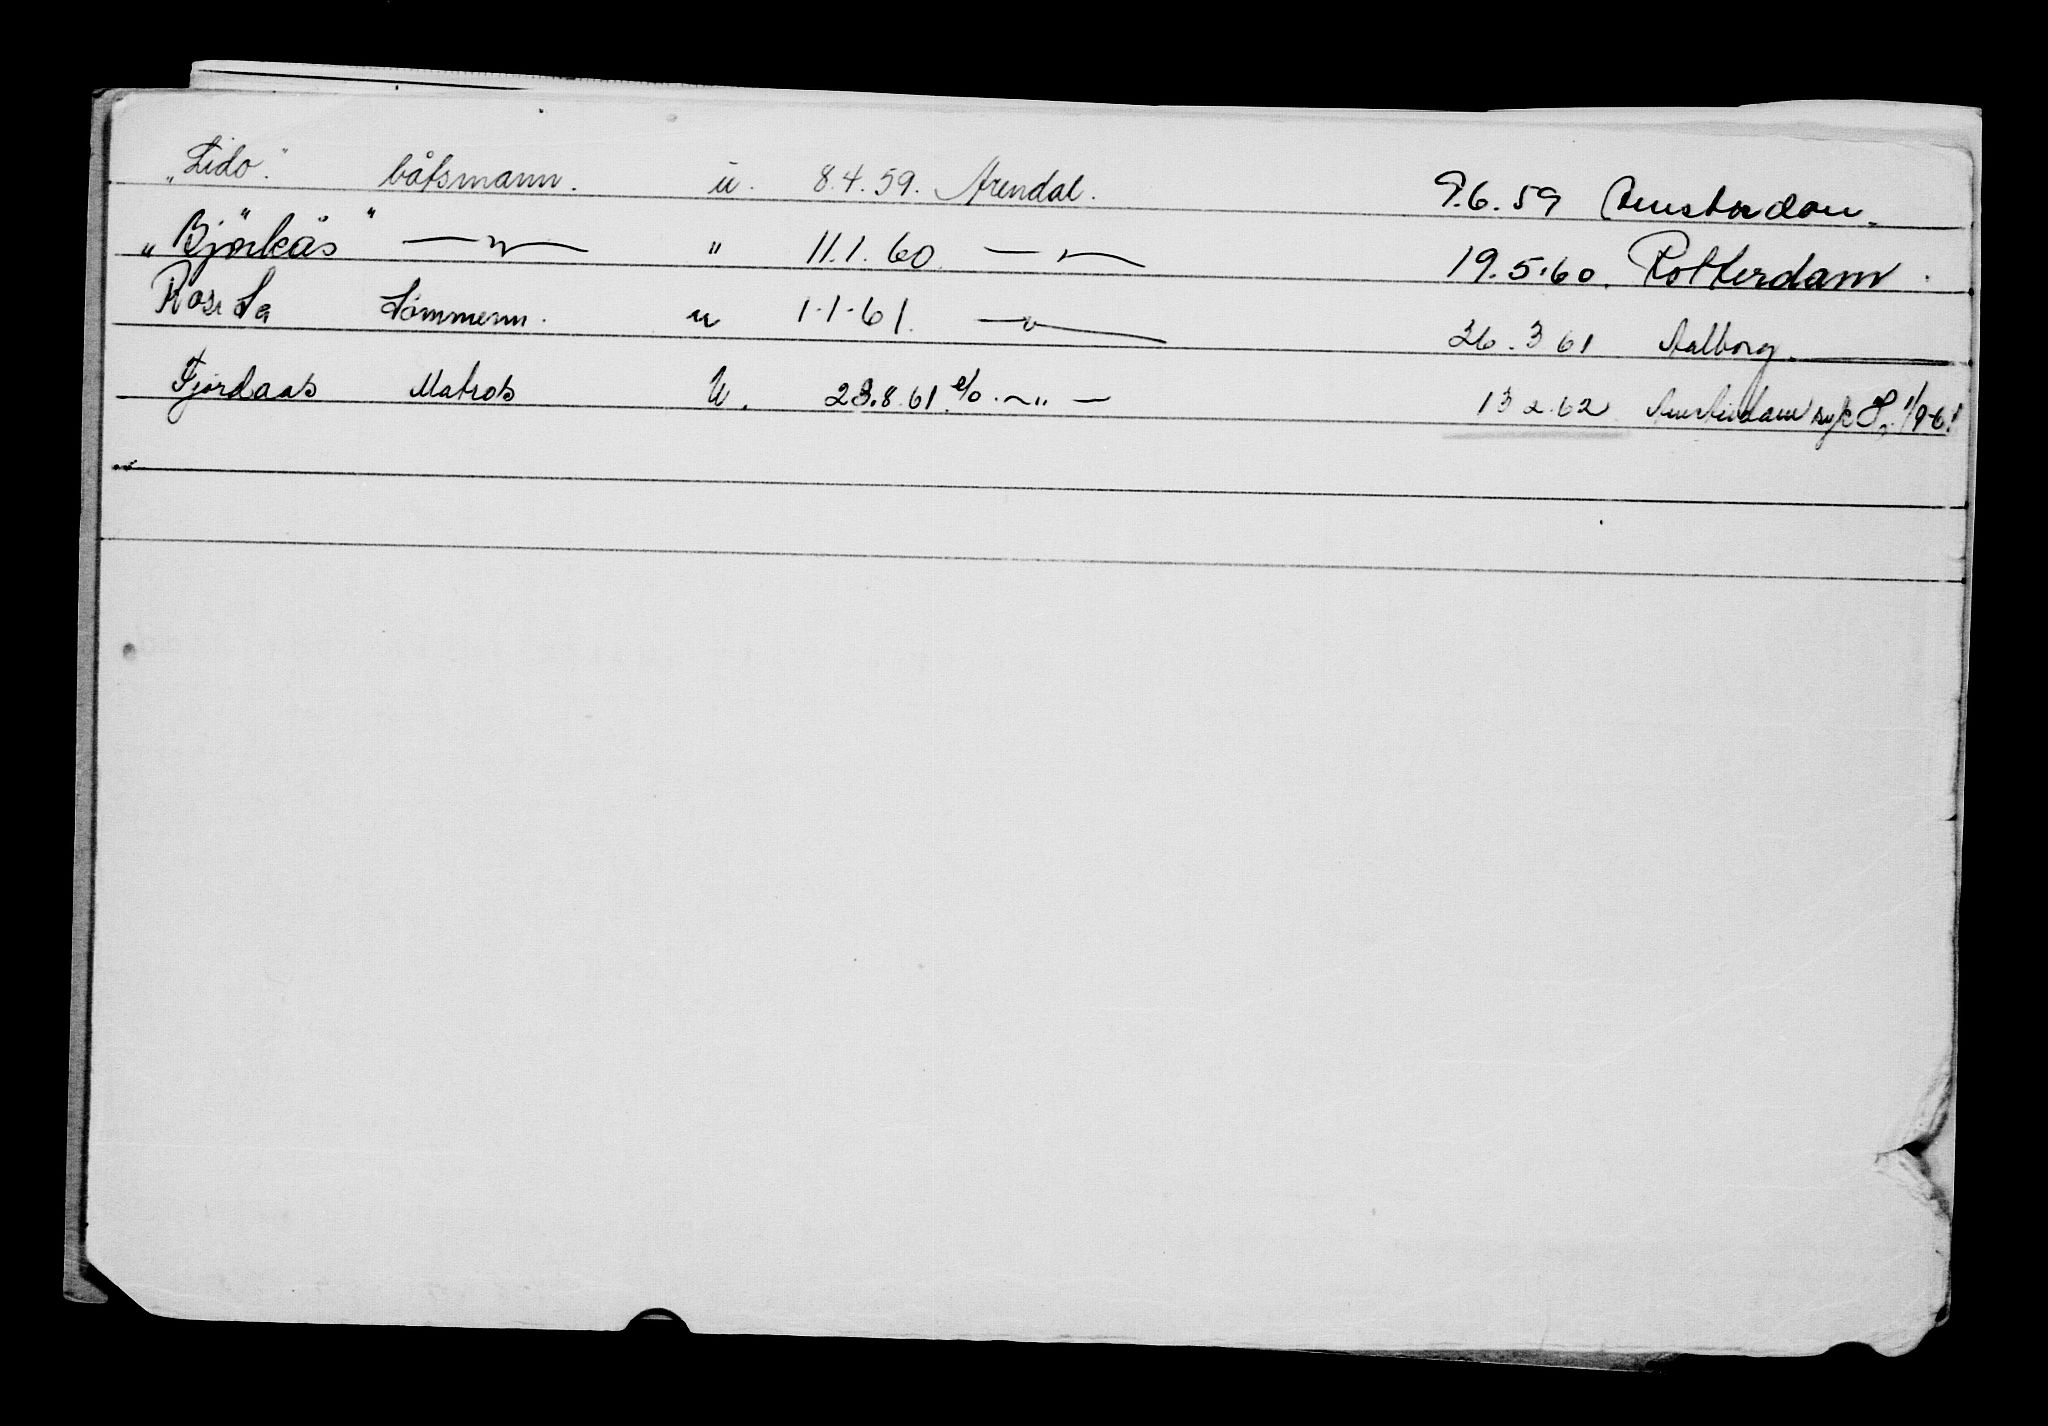 „Lido." båtsmann. u. 8.4.59. Arendal. 9.6.59 Amsterdam.
„Björkås" — „ — " 11.1.60. — „ — 19.5.60. Rotterdam.
Tømmerm. u 1.1.61. — „ — 26.3 61 Aalborg.
Fjordaas Matros U. 23.8.61 — „ — 13 2.62 Amsterdam syk 1/9-61